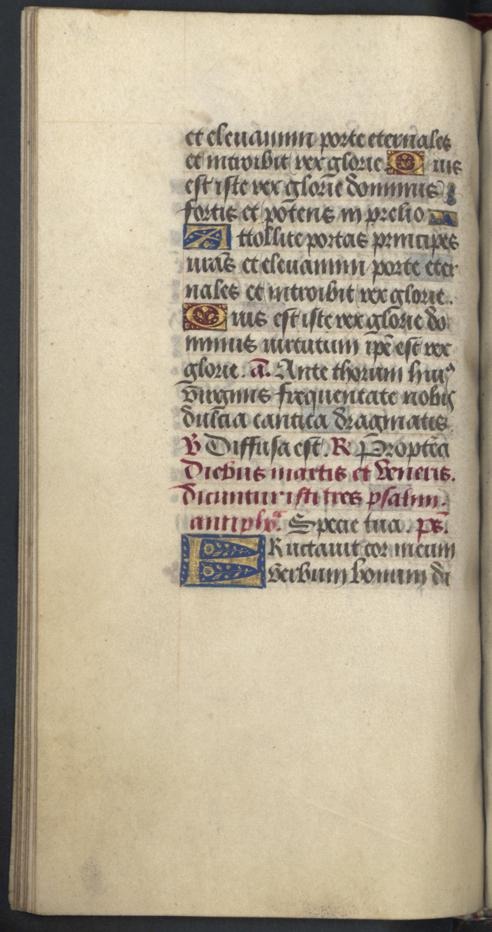 et eleuamini porte eternales
et introibit rex glorie Quis
est iste rex glorie dominus
fortis et potens in prelio
Attollite portas principes
uras et eleuamini porte eter
nales et introibit rex glorie.
Quis est iste rex glorie do
minus uirtutum ipe est rex
glorie. a. Ante thorum huiꝰ
virginis frequentate nobis
dulcia cantica dragmatis
V Diffusa est. R Propterea
Diebus martis et veneris.
dicuntur isti tres psalmi.
antipho. Specie tua. ps.
ERuctauit cor meum
verbum bonum di